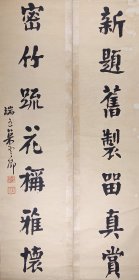 新題舊製留真賞
密竹疏花稱雅懷